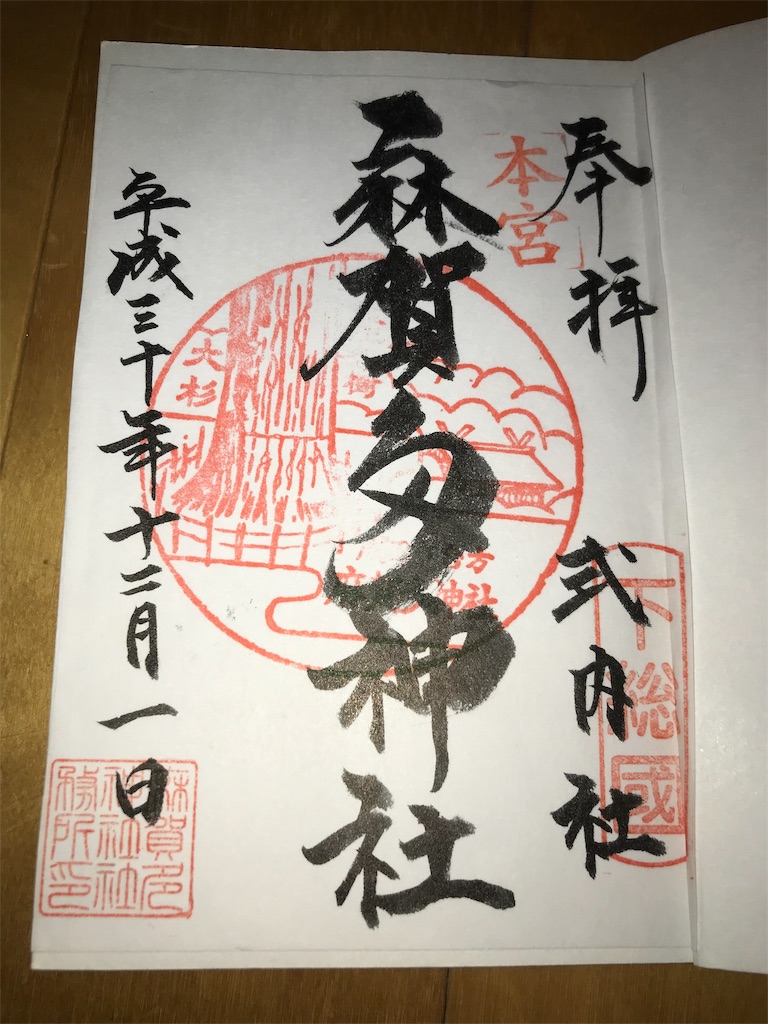 奉拝
本宮
式内社
下総國
麻賀多神社
大杉
神社
平成三十年十二月一日
麻賀多
神社社
務所印